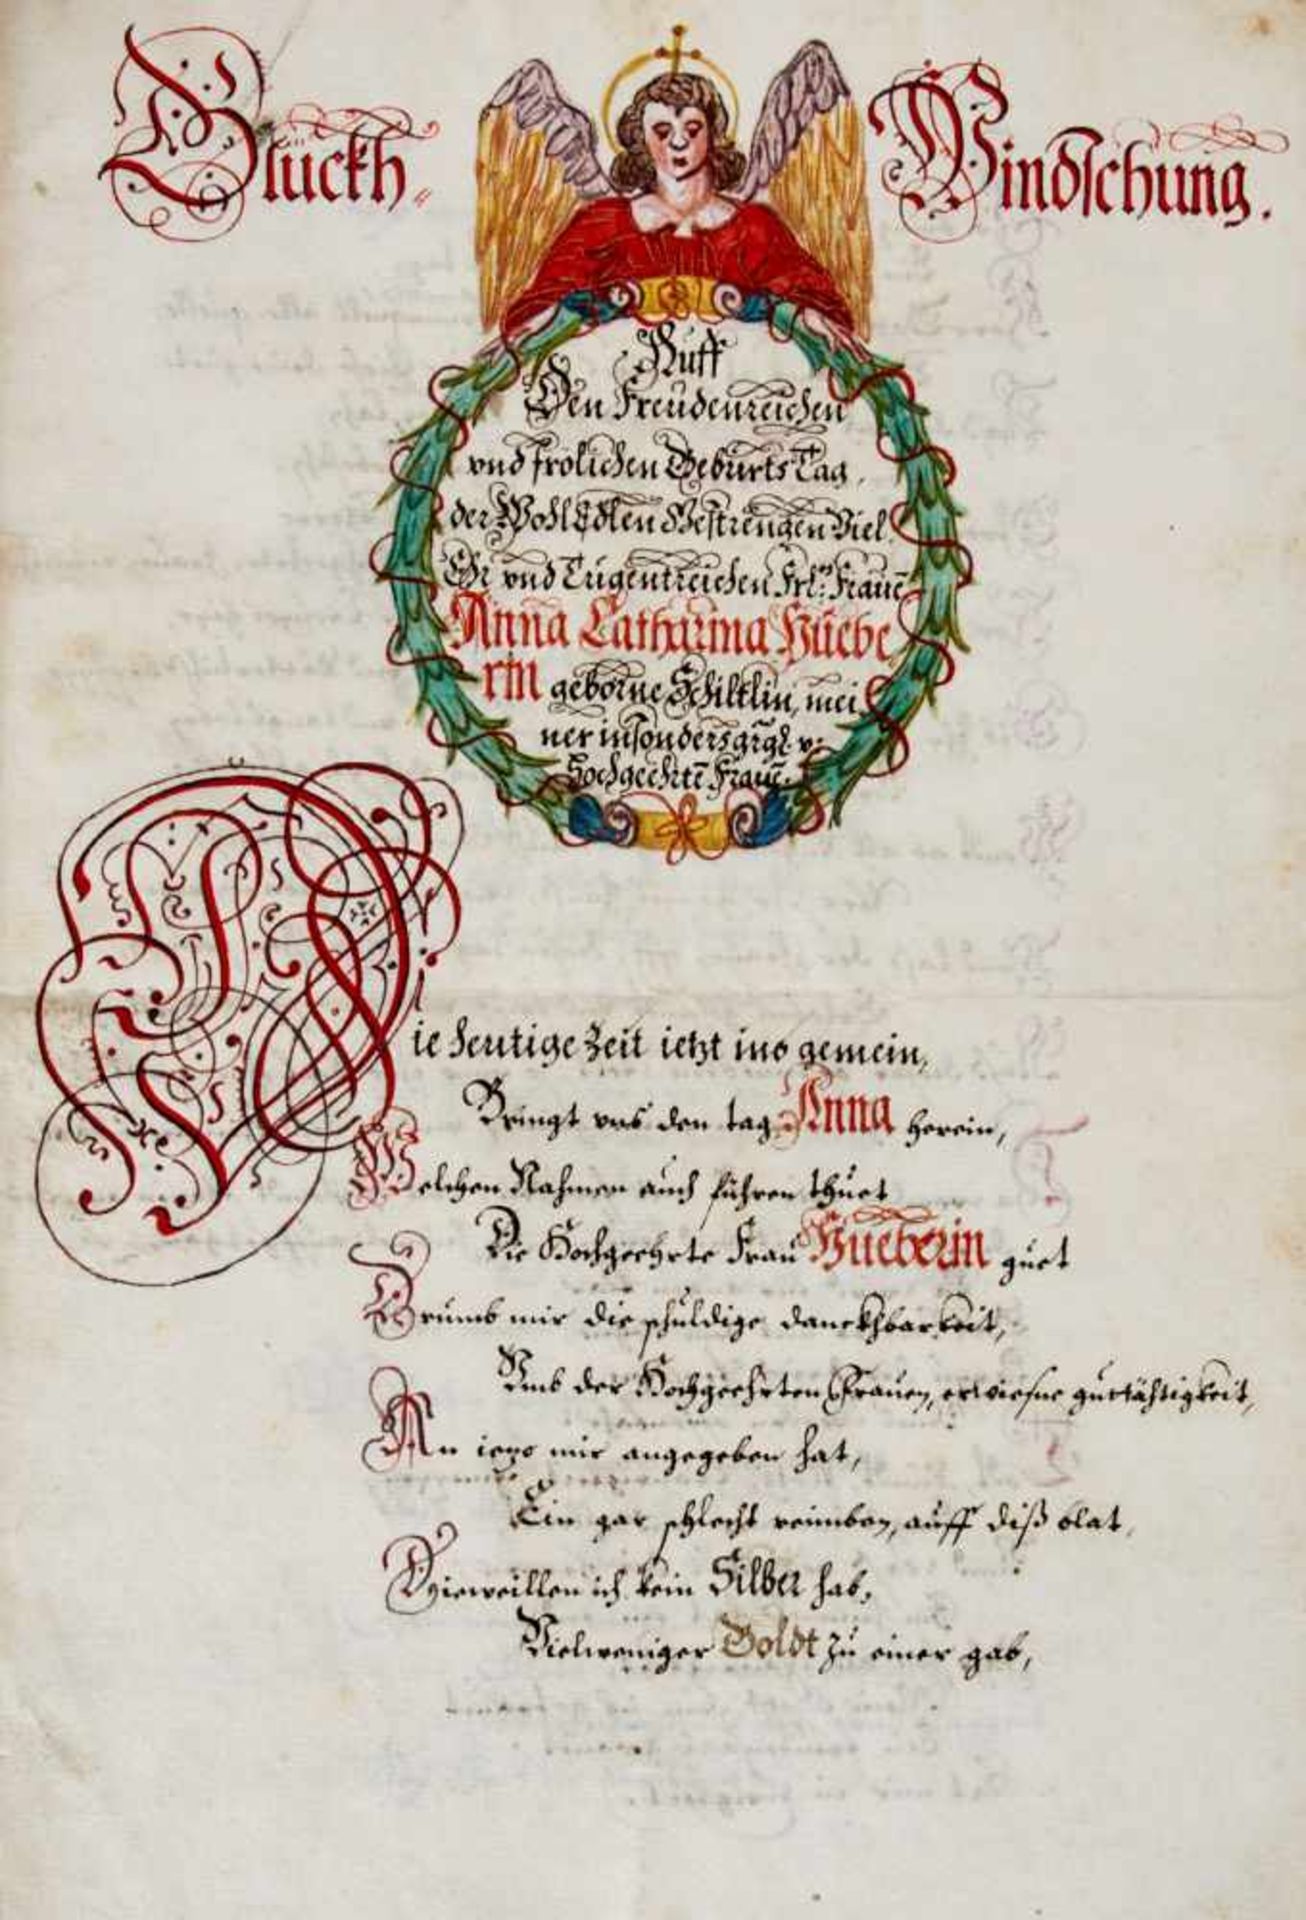 Glückh„ Windschung.
Auff
Den Freudenreichen
vnd frölichen Geburts Tag,
der Wohl Edlen Gestrengen Viel
Ehr vnd Tugentreichen Frl: Frauē
Anna Catharina Hüebe
rin geborne Schiltlin, mei
ner insonders grgl. v:
Hochgeehrtē Frauē.
Die heutige Zeit ietzt ins gemein,
Bringt vns den tag Anna herein,
Welchen Nahmen auch führen thuet
Die Hochgeehrte Frau Hüeberin guet
Drumb mir die schuldige danckhbarkeit,
Vmb der Hochgeehrten Frauen, erwiesne guettähtigkeit,
An iezo mir angegeben hat,
Ein gar schlecht reimben, auff diß blat,
Dieweillen ich kein Silber hab,
Vielweniger Goldt zu einer gab,